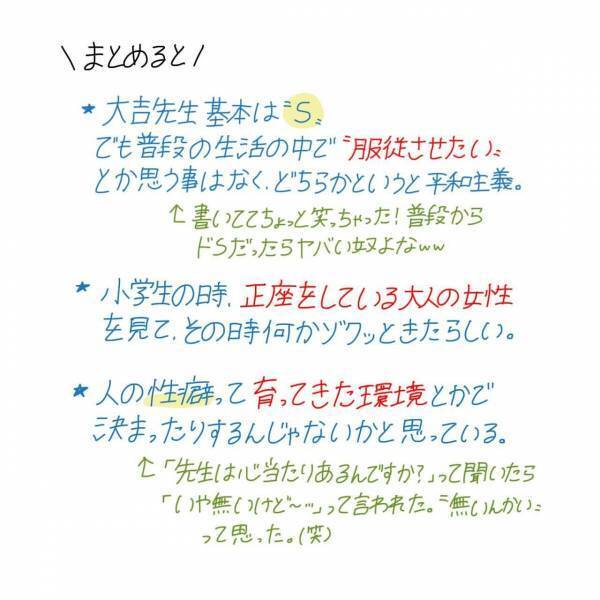 \ まとめると /
★ 大吉先生 基本は〝S〟
でも普段の生活の中で〝服従させたい〟
とか思う事はなく、どちらかというと 平和主義。
↑ 書いててちょっと笑っちゃった！普段から
ドSだったらヤバい奴よなww
★ 小学生の時、正座をしている大人の女性
を見て、その時何かゾワッときたらしい。
★ 人の性癖って 育ってきた環境とかで
決まったりするんじゃないかと思っている。
↑「先生は心当たりあるんですか？」って聞いたら
「いや無いけど〜…」って言われた。〝無いんかい〟
って思った。(笑)